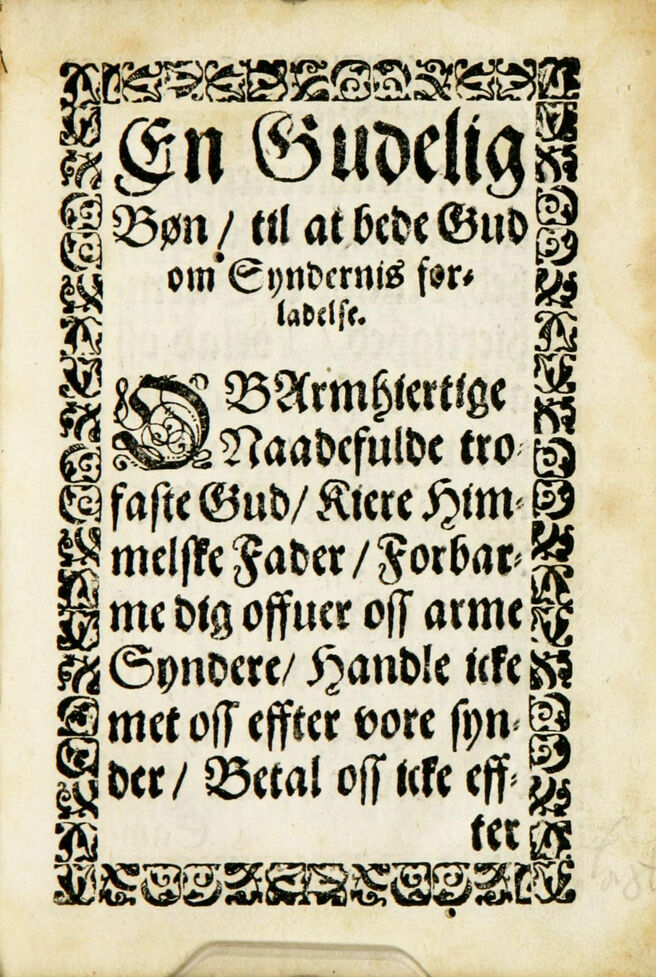 En Gudelig
Bøn / til at bede Gud
om Syndernis for⸗
ladelse.
O BArmhiertige
Naadefulde tro⸗
faste Gud / Kiere Him⸗
melske Fader / Forbar⸗
me dig offuer oss arme
Syndere / Handle icke
met oss effter vore syn⸗
der / Betal oss icke eff⸗
ter